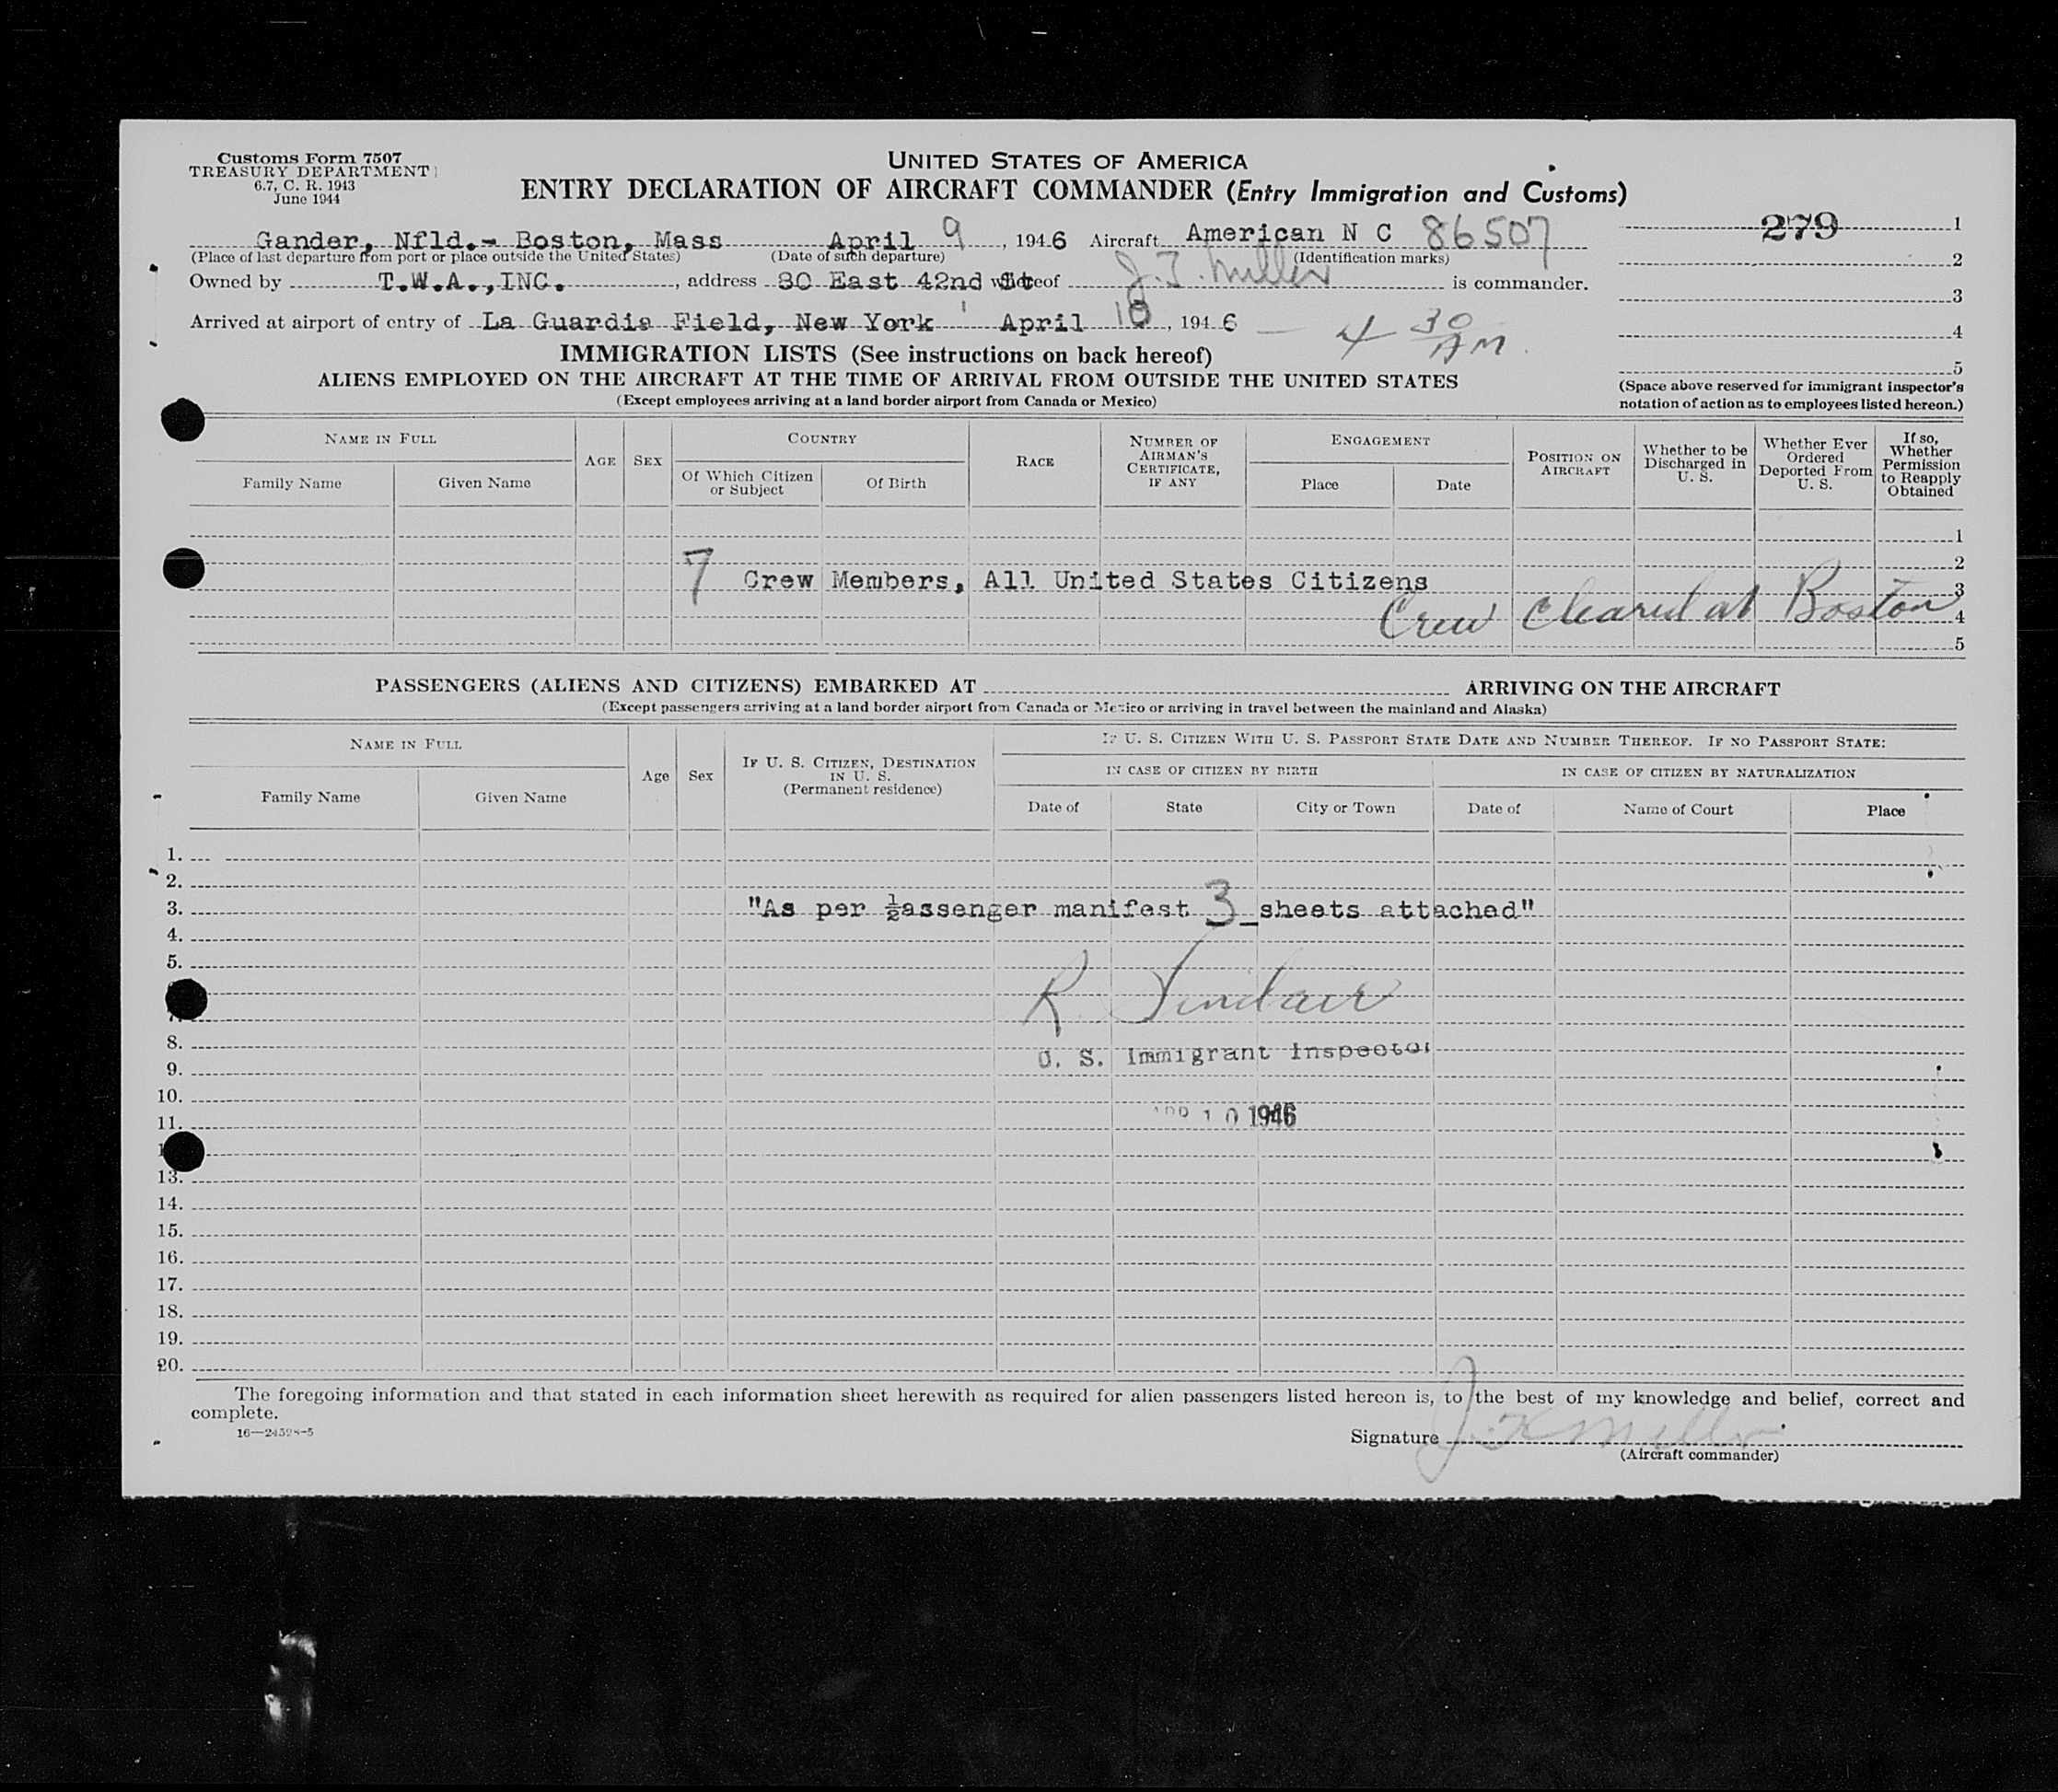 Customs Form 7507
TREASURY DEPARTMENT
6.7, C. R. 1943
June 1944
UNITED STATES OF AMERICA
ENTRY DECLARATION OF AIRCRAFT COMMANDER (Entry Immigration and Customs)
Gander, Nfld.- Boston, Mass April 9, 1946 Aircraft American N C 86507
(Place of last departure from port or place outside the United States) (Date of such departure) (Identification marks)
Owned by T.W.A.,INC., address 80 East 42nd St whereof J. Miller is commander.
Arrived at airport of entry of La Guardia Field, New York April 10, 1946 — 4 30 AM.
279 1
2
3
4
5
(Space above reserved for immigrant inspector's
notation of action as to employees listed hereon.)
IMMIGRATION LISTS (See instructions on back hereof)
ALIENS EMPLOYED ON THE AIRCRAFT AT THE TIME OF ARRIVAL FROM OUTSIDE THE UNITED STATES
(Except employees arriving at a land border airport from Canada or Mexico)
NAME IN FULL
Family Name
Given Name
AGE
SEX
COUNTRY
Of Which Citizen
or Subject
Of Birth
RACE
NUMBER OF
AIRMAN'S
CERTIFICATE,
IF ANY
ENGAGEMENT
Place
Date
POSITION ON
AIRCRAFT
Whether to be
Discharged in
U. S.
Whether Ever
Ordered
Deported From
U. S.
If so,
Whether
Permission
to Reapply
Obtained
1
2
7 Crew Members, All United States Citizens 3
Crew cleared at Boston 4
5
PASSENGERS (ALIENS AND CITIZENS) EMBARKED AT ARRIVING ON THE AIRCRAFT
(Except passengers arriving at a land border airport from Canada or Mexico or arriving in travel between the mainland and Alaska)
NAME IN FULL
Family Name
Given Name
Age
Sex
IF U. S. CITIZEN, DESTINATION
IN U. S.
(Permanent residence)
IF U. S. CITIZEN WITH U. S. PASSPORT STATE DATE AND NUMBER THEREOF. IF NO PASSPORT STATE:
IN CASE OF CITIZEN BY BIRTH
Date of
State
City or Town
IN CASE OF CITIZEN BY NATURALIZATION
Date of
Name of Court
Place
1.
2.
3. "As per ½assenger manifest 3 sheets attached"
4.
5.
R. Sinclair
8. U. S. Immigrant Inspector
9.
10.
11. 10 1946
13.
14.
15.
16.
17.
18.
19.
20.
The foregoing information and that stated in each information sheet herewith as required for alien passengers listed hereon is, to the best of my knowledge and belief, correct and
complete.
Signature J. Miller
(Aircraft commander)